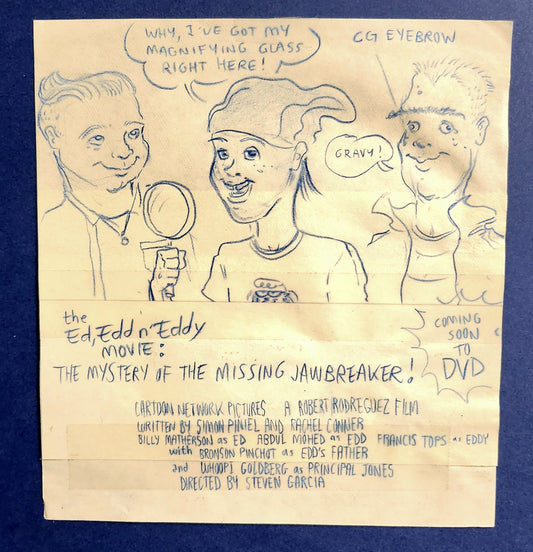 WHY, I'VE GOT MY
MAGNIFYING GLASS
RIGHT HERE!
CG EYEBROW
GRAVY!
the
Ed, Edd 'n' Eddy
MOVIE:
THE MYSTERY OF THE MISSING JAWBREAKER!
COMING
SOON
TO
DVD
CARTOON NETWORK PICTURES A ROBERT RODREGUEZ FILM
WRITTEN BY SIMON PINIEL AND RACHEL CONNER
BILLY MATHERSON as ED ABDUL MOHED as EDD FRANCIS TOPS as EDDY
with BRONSON PINCHOT as EDD'S FATHER
and WHOOPI GOLDBERG as PRINCIPAL JONES
DIRECTED BY STEVEN GARCIA